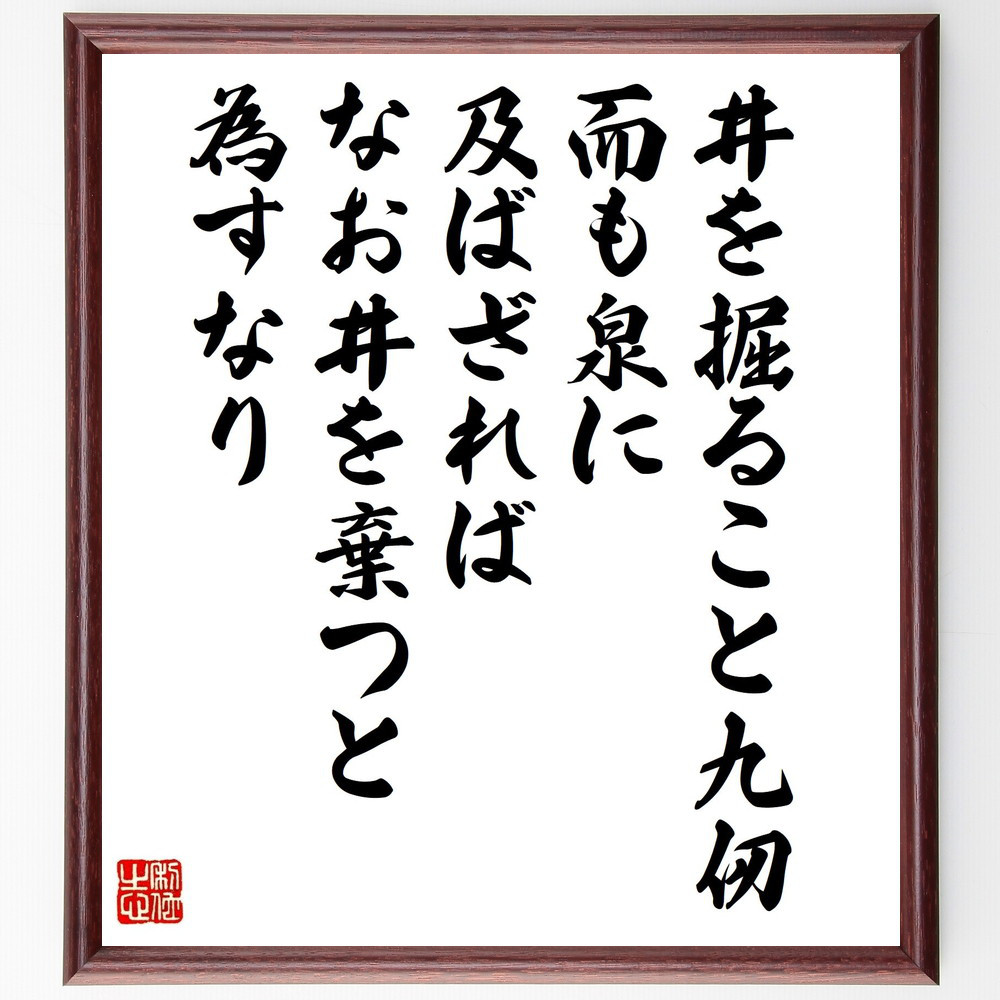 井を掘ること九仞
而も泉に
及ばざれば
なお井を棄つと
為すなり